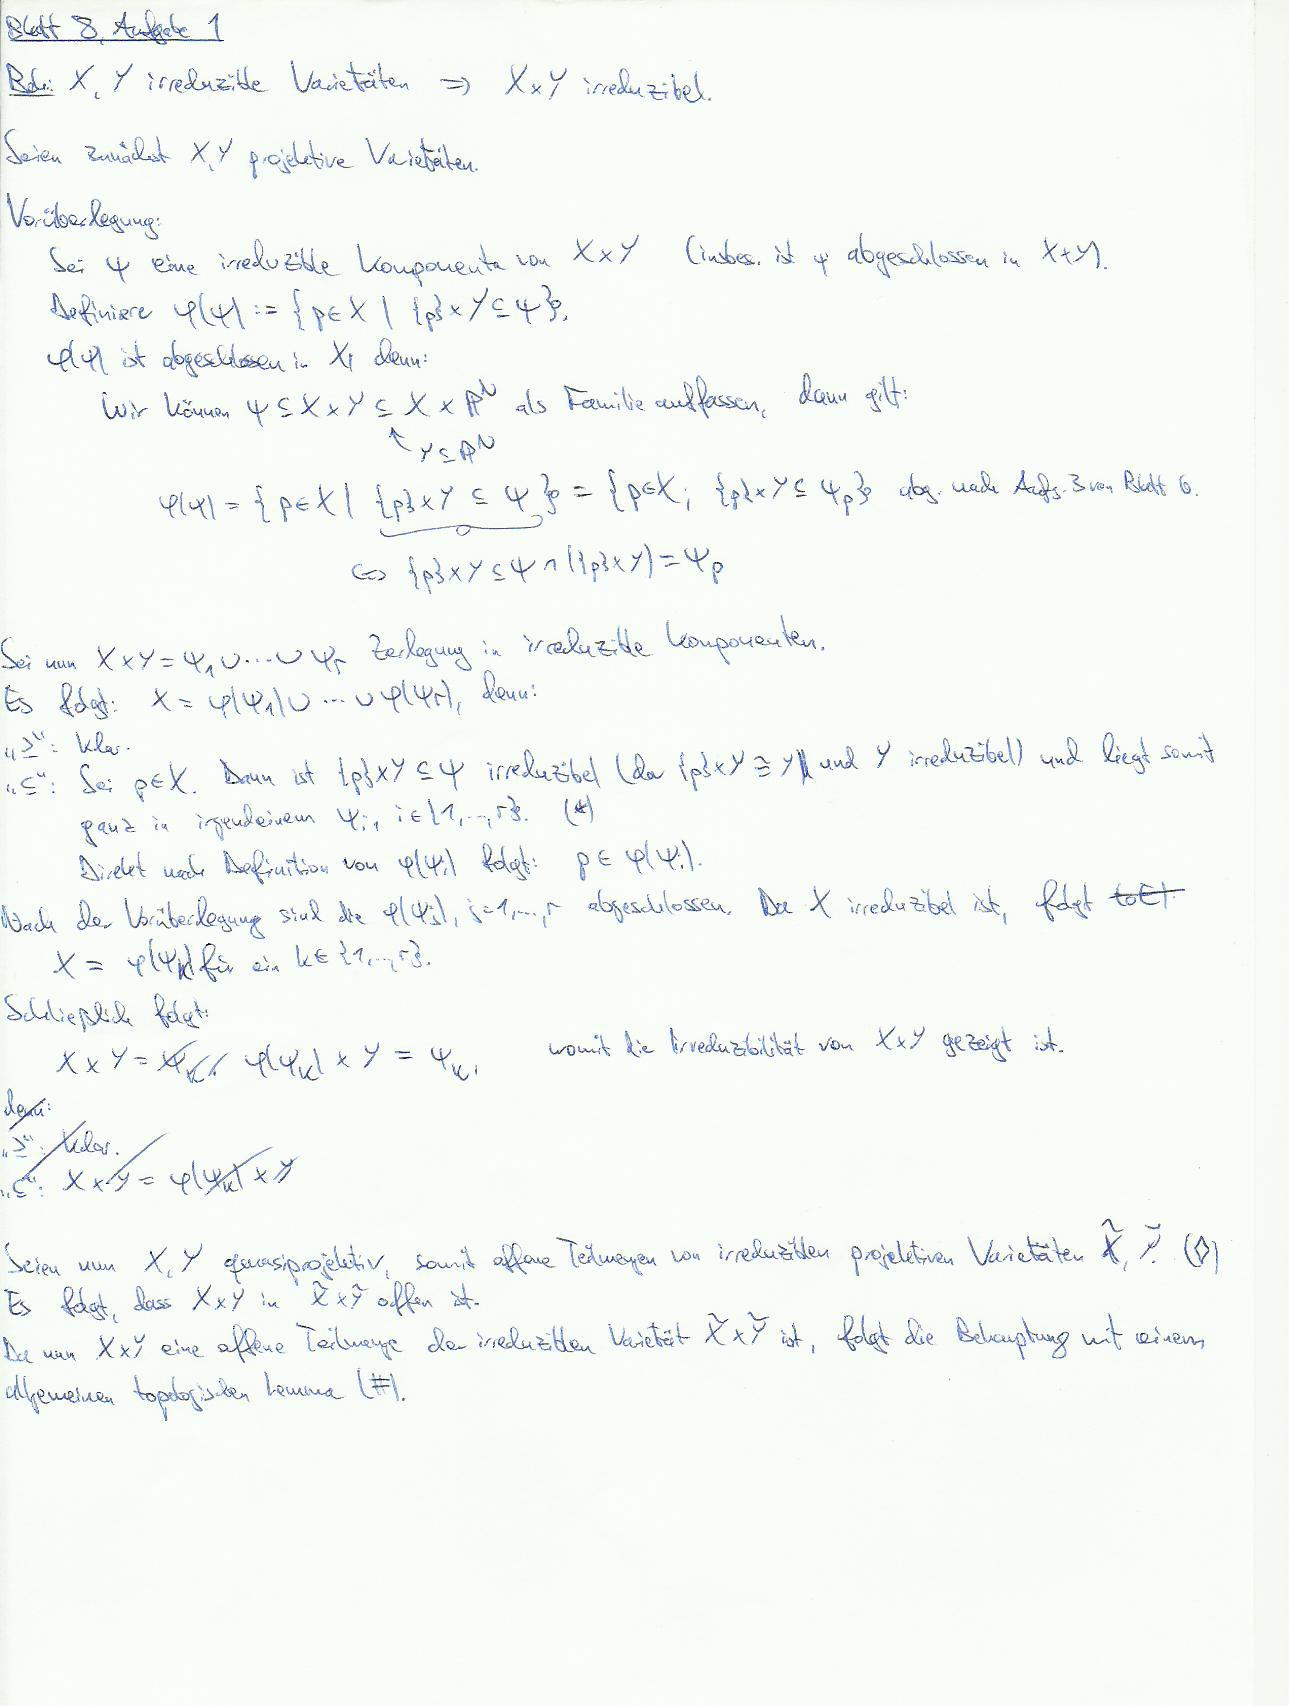 Blatt 8, Aufgabe 1
Beh.: X, Y irreduzible Varietäten => X×Y irreduzibel.
Seien zunächst X,Y projektive Varietäten.
Vorüberlegung:
Sei Ψ eine irreduzible Komponente von X×Y (insbes. ist Ψ abgeschlossen in X×Y).
Definiere φ(Ψ) := {p∈X | {p}×Y⊆Ψ}.
φ(Ψ) ist abgeschlossen in X, denn:
Wir können Ψ⊆X×Y⊆X×ℙ^N als Familie auffassen, dann gilt:
↑ Y⊆ℙ^N
φ(Ψ) = {p∈X | {p}×Y ⊆ Ψ} = {p∈X; {p}×Y⊆Ψ_p} abg. nach Aufg. 3 von Blatt 6.
⇔ {p}×Y⊆Ψ∩({p}×Y)=Ψ_p
Sei nun X×Y=Ψ_1∪···∪Ψ_r Zerlegung in irreduzible Komponenten.
Es folgt: X = φ(Ψ_1)∪···∪φ(Ψ_r), denn:
„⊇“: klar.
„⊆“: Sei p∈X. Dann ist {p}×Y⊆Ψ irreduzibel (da {p}×Y≅Y und Y irreduzibel) und liegt somit
ganz in irgendeinem Ψ_i, i∈{1,...,r}. (*)
Direkt nach Definition von φ(Ψ_i) folgt: p∈φ(Ψ_i).
Nach der Vorüberlegung sind die φ(Ψ_j), j=1,...,r abgeschlossen. Da X irreduzibel ist, folgt
X = φ(Ψ_k) für ein k∈{1,...,r}.
Schließlich folgt:
X×Y = φ(Ψ_k)×Y = Ψ_k, womit die Irreduzibilität von X×Y gezeigt ist.
denn:
„⊇“: klar.
„⊆“: X×Y = φ(Ψ_k)×Y
Seien nun X,Y quasiprojektiv, somit offene Teilmengen von irreduziblen projektiven Varietäten X̃, Ỹ. (◊)
Es folgt, dass X×Y in X̃×Ỹ offen ist.
Da nun X×Y eine offene Teilmenge der irreduziblen Varietät X̃×Ỹ ist, folgt die Behauptung mit einem
allgemeinen topologischen Lemma (#).